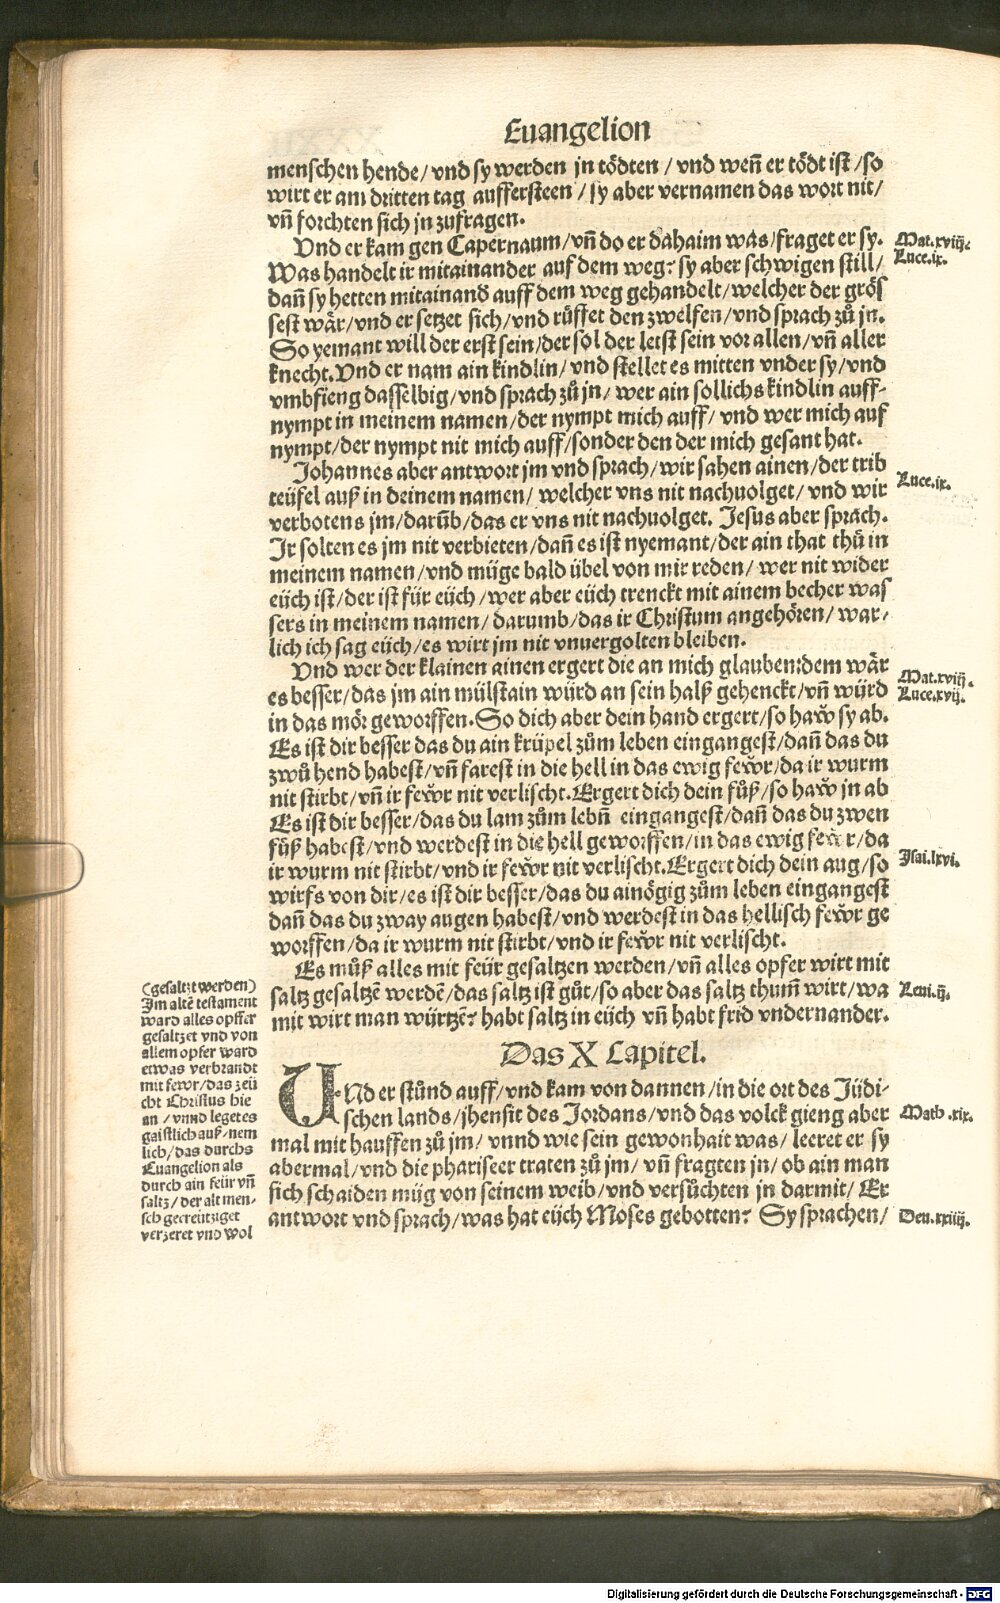 Euangelion
menschen hende/ vnd sy werden jn tödten / vnd weñ er tödt ist /so
wirt er am dritten tag aufferstEen / sy aber vernamen das wort nit/
vñ forchten sich jn zufragen.
Vnd er kam gen Capernaum/ vñ do er dahaim was/ fraget er sy.
Mat.xviij.
Luce.ix.
Was handelt ir mitainander auf dem weg? sy aber schwigen still/
dañ sy hetten mitainand auff dem weg gehandelt/ welcher der grös
sest wär/ vnd er setzet sich/ vnd rüffet den zwelfen/ vnd sprach zů jn.
So yemant will der erst sein/ der sol der letst sein vor allen/ vñ aller
knecht. Vnd er nam ain kindlin/ vnd stellet es mitten vnder sy/ vnd
vmbfieng dasselbig/ vnd sprach zů jn/ wer ain sollichs kindlin auff-
nympt in meinem namen/ der nympt mich auff/ vnd wer mich auf
nympt/ der nympt nit mich auff/ sonder den der mich gesant hat.
Johannes aber antwort jm vnd sprach/ wir sahen ainen/ der trib
Luce.ix.
teüfel auß in deinem namen/ welcher vns nit nachuolget/ vnd wir
verbotens jm/ darūb/ das er vns nit nachuolget. Jesus aber sprach.
Ir solten es jm nit verbieten/ dañ es ist nyemant/ der ain that thü in
meinem namen/ vnd müge bald übel von mir reden/ wer nit wider
eüch ist/ der ist für eüch/ wer aber eüch trenckt mit ainem becher was
sers in meinem namen/ darumb/ das ir Christum angehören/ war-
lich ich sag eüch/ es wirt jm nit vnuergolten bleiben.
Vnd wer der klainen ainen ergert die an mich glauben: dem wär
Mat.xviij.
Luce.xvij.
es besser/ das jm ain mülstain würd an sein halß gehenckt/ vñ würd
in das mör geworffen. So dich aber dein hand ergert/ so haw̌ sy ab.
Es ist dir besser das du ain krüpel zům leben eingangest/ dañ das du
zwů hend habest/ vñ farest in die hell in das ewig few̌r/ da ir wurm
nit stirbt/ vñ ir few̌r nit verlischt. Ergert dich dein fůß/ so haw̌ jn ab
Es ist dir besser/ das du lam zům lebñ eingangest/ dañ das du zwen
fůß habest/ vnd werdest in die hell geworffen/ in das ewig few̌r/ da
Isai.lxvi.
ir wurm nit stirbt/ vnd ir few̌r nit verlischt. Ergert dich dein aug/ so
wirfs von dir/ es ist dir besser/ das du ainögig zům leben eingangest
dañ das du zway augen habest/ vnd werdest in das hellisch few̌r ge
worffen/ da ir wurm nit stirbt/ vnd ir few̌r nit verlischt.
Es můß alles mit feür gesaltzen werden/ vñ alles opfer wirt mit
saltz gesaltzē werdē/ das saltz ist gůt/ so aber das saltz thum̄ wirt/ wa
Leui.ij.
mit wirt man würtzē? habt saltz in eüch vñ habt frid vndernander.
(gesaltzt werden)
Im altē testament
ward alles opffer
gesaltzet vnd von
allem opfer ward
etwas verbrandt
mit fewr/ das zeü
cht Christus hie
an / vnnd leget es
gaistlich auß/ nem
lich/ das durchs
Euangelion als
durch ain feür vñ
saltz/ der alt men-
sch gecreütziget
verzeret vnd wol
Das X Capitel.
VNd er stůnd auff/ vnd kam von dannen/ in die ort des Jüdi-
schen lands/ jhensit des Jordans/ vnd das volck gieng aber
Math.xix.
mal mit hauffen zů jm/ vnnd wie sein gewonhait was/ leeret er sy
abermal/ vnd die phariseer traten zů jm/ vñ fragten jn/ ob ain man
sich schaiden müg von seinem weib/ vnd versůchten jn darmit/ Er
antwort vnd sprach/ was hat eüch Moses gebotten? Sy sprachen/
Deu.xxiiij.
Digitalisierung gefördert durch die Deutsche Forschungsgemeinschaft - DFG